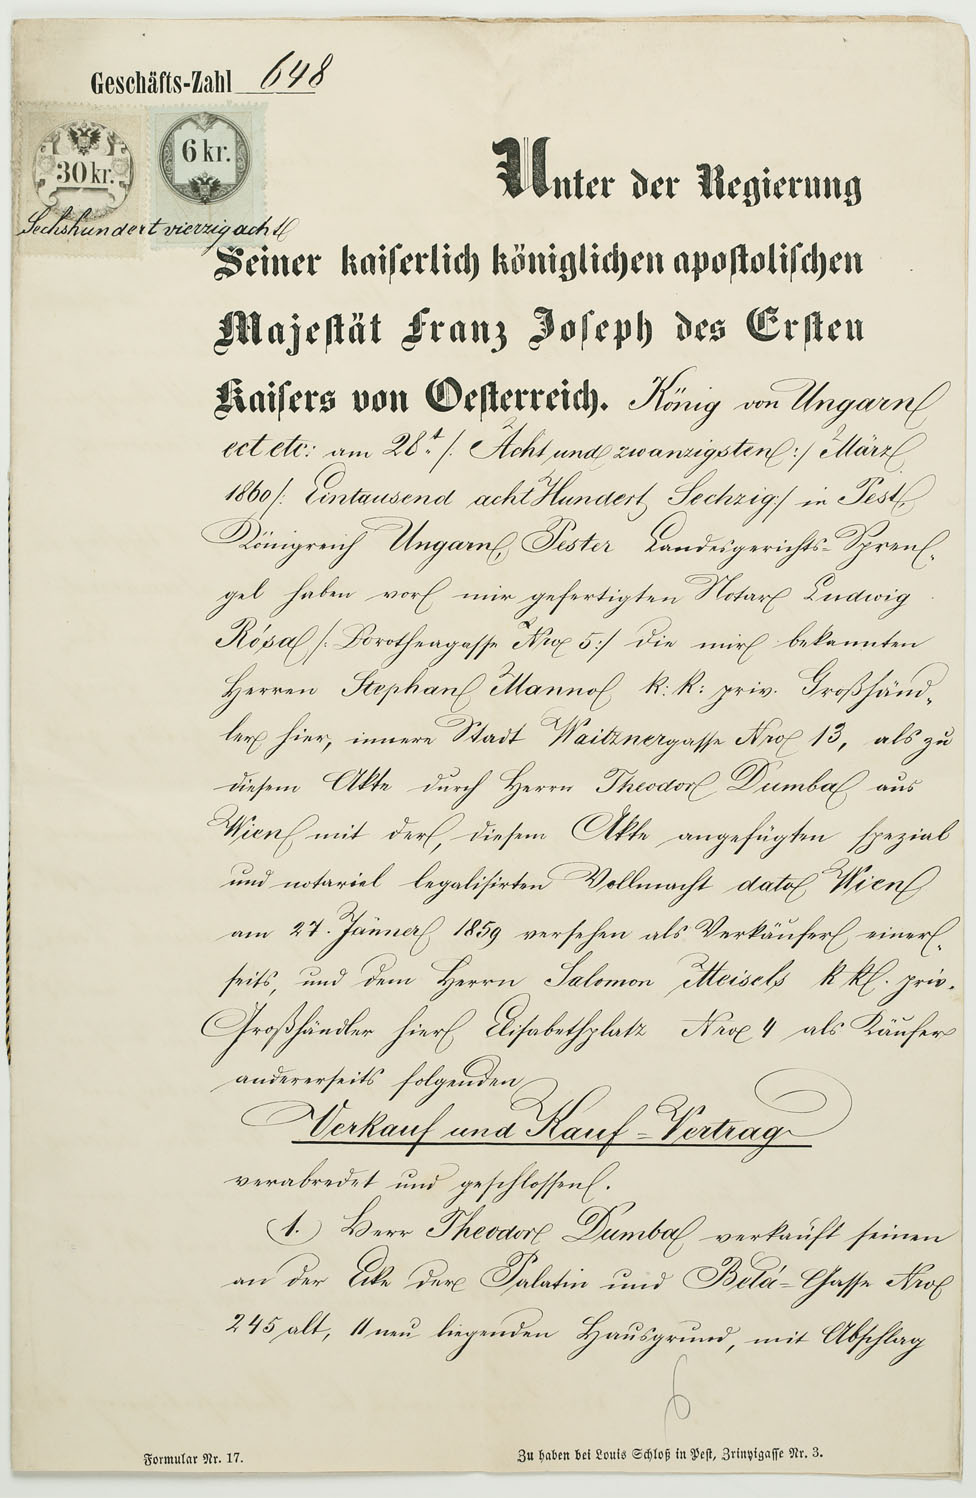 Geschäfts-Zahl 648
30 kr.
6 kr.
Sechshundert vierzig acht
Unter der Regierung
Seiner kaiserlich königlichen apostolischen
Majestät Franz Joseph des Ersten
Kaisers von Oesterreich. König von Ungarn
ect etc: am 28t. /: Acht und zwanzigsten :/ März
1860 /: Eintausend acht Hundert Sechzig :/ in Pest,
Königreich Ungarn, Pester Landesgerichts-Spren-
gel haben vor mir gefertigten Notar Ludwig
Rósa /: Dorotheagasse Nro 5 :/ die mir bekannten
Herren Stephan Manno k: k: priv. Großhänd-
ler hier, innere Stadt Waitznergasse Nro 13, als zu
diesem Akte durch Herrn Theodor Dumba aus
Wien mit der, diesem Akte angefügten spezial
und notariel legalisirten Vollmacht dato Wien
am 27. Jänner 1859 versehen als Verkäufer einer-
seits, und dem Herrn Salomon Meisels k k. priv.
Großhändler hier Elisabethplatz Nro 4 als Käufer
andererseits folgenden
Verkauf und Kauf-Vertrag
verabredet und geschlossen.
1.) Herr Theodor Dumba verkäuft seinen
an der Ecke der Palatin und Belá-Gasse Nro
245 alt, 11 neu liegenden Hausgrund, mit Abschlag
Formular Nr. 17.
Zu haben bei Louis Schloß in Pest, Zrinyigasse Nr. 3.